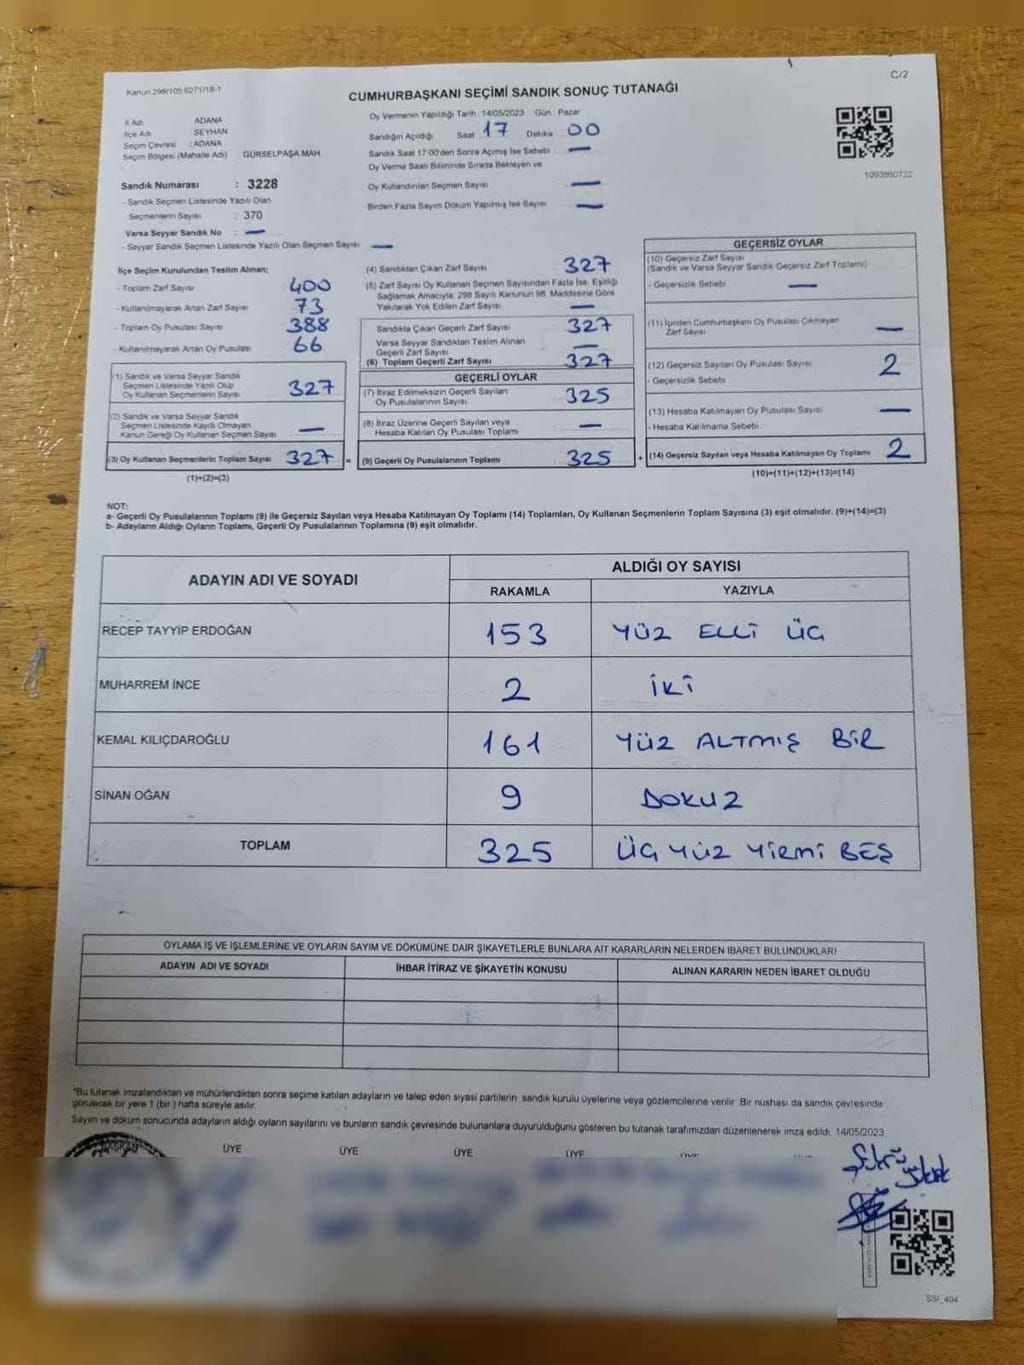 Kanun 298/105,6271/18-1
CUMHURBAŞKANI SEÇİMİ SANDIK SONUÇ TUTANAĞI
C/2
İl Adı ADANA
İlçe Adı SEYHAN
Seçim Çevresi : ADANA
Seçim Bölgesi (Mahalle Adı) GÜRSELPAŞA MAH.
Sandık Numarası : 3228
- Sandık Seçmen Listesinde Yazılı Olan
Seçmenlerin Sayısı : 370
Varsa Seyyar Sandık No : —
- Seyyar Sandık Seçmen Listesinde Yazılı Olan Seçmen Sayısı —
Oy Vermenin Yapıldığı Tarih : 14/05/2023 Gün : Pazar
Sandığın Açıldığı Saat 17 Dakika 00
Sandık Saat 17:00'den Sonra Açılmış İse Sebebi —
Oy Verme Saati Bitiminde Sırada Bekleyen ve
Oy Kullandırılan Seçmen Sayısı —
Birden Fazla Sayım Döküm Yapılmış İse Sayısı —
1093960722
İlçe Seçim Kurulundan Teslim Alınan;
- Toplam Zarf Sayısı 400
- Kullanılmayarak Artan Zarf Sayısı 73
- Toplam Oy Pusulası Sayısı 388
- Kullanılmayarak Artan Oy Pusulası 66
(1) Sandık ve Varsa Seyyar Sandık
Seçmen Listesinde Yazılı Olup
Oy Kullanan Seçmenlerin Sayısı 327
(2) Sandık ve Varsa Seyyar Sandık
Seçmen Listesinde Kayıtlı Olmayan
Kanun Gereği Oy Kullanan Seçmen Sayısı —
(3) Oy Kullanan Seçmenlerin Toplam Sayısı 327 =
(1)+(2)=(3)
(4) Sandıktan Çıkan Zarf Sayısı 327
(5) Zarf Sayısı Oy Kullanan Seçmen Sayısından Fazla İse, Eşitliği
Sağlamak Amacıyla; 298 Sayılı Kanunun 98. Maddesine Göre
Yakılarak Yok Edilen Zarf Sayısı —
Sandıkta Çıkan Geçerli Zarf Sayısı 327
Varsa Seyyar Sandıktan Teslim Alınan
Geçerli Zarf Sayısı —
(6) Toplam Geçerli Zarf Sayısı 327
GEÇERLİ OYLAR
(7) İtiraz Edilmeksizin Geçerli Sayılan
Oy Pusulalarının Sayısı 325
(8) İtiraz Üzerine Geçerli Sayılan veya
Hesaba Katılan Oy Pusulası Toplamı —
(9) Geçerli Oy Pusulalarının Toplamı 325 +
GEÇERSİZ OYLAR
(10) Geçersiz Zarf Sayısı
(Sandık ve Varsa Seyyar Sandık Geçersiz Zarf Toplamı)
- Geçersizlik Sebebi —
(11) İçinden Cumhurbaşkanı Oy Pusulası Çıkmayan
Zarf Sayısı —
(12) Geçersiz Sayılan Oy Pusulası Sayısı 2
- Geçersizlik Sebebi
(13) Hesaba Katılmayan Oy Pusulası Sayısı —
- Hesaba Katılmama Sebebi :
(14) Geçersiz Sayılan veya Hesaba Katılmayan Oy Toplamı 2
(10)+(11)+(12)+(13)=(14)
NOT:
a- Geçerli Oy Pusulalarının Toplamı (9) ile Geçersiz Sayılan veya Hesaba Katılmayan Oy Toplamı (14) Toplamları, Oy Kullanan Seçmenlerin Toplam Sayısına (3) eşit olmalıdır. (9)+(14)=(3)
b- Adayların Aldığı Oyların Toplamı, Geçerli Oy Pusulalarının Toplamına (9) eşit olmalıdır.
ADAYIN ADI VE SOYADI
ALDIĞI OY SAYISI
RAKAMLA YAZIYLA
RECEP TAYYİP ERDOĞAN 153 YÜZ ELLİ ÜÇ
MUHARREM İNCE 2 İKİ
KEMAL KILIÇDAROĞLU 161 YÜZ ALTMIŞ BİR
SİNAN OĞAN 9 DOKUZ
TOPLAM 325 ÜÇ YÜZ YİRMİ BEŞ
OYLAMA İŞ VE İŞLEMLERİNE VE OYLARIN SAYIM VE DÖKÜMÜNE DAİR ŞİKAYETLERLE BUNLARA AİT KARARLARIN NELERDEN İBARET BULUNDUKLARI
ADAYIN ADI VE SOYADI İHBAR İTİRAZ VE ŞİKAYETİN KONUSU ALINAN KARARIN NEDEN İBARET OLDUĞU
*Bu tutanak imzalandıktan ve mühürlendikten sonra seçime katılan adayların ve talep eden siyasi partilerin sandık kurulu üyelerine veya gözlemcilerine verilir. Bir nüshası da sandık çevresinde
görülecek bir yere 1 (bir) hafta süreyle asılır.
Sayım ve döküm sonucunda adayların aldığı oyların sayılarını ve bunların sandık çevresinde bulunanlara duyurulduğunu gösteren bu tutanak tarafımızdan düzenlenerek imza edildi. 14/05/2023
BAŞKAN ÜYE ÜYE ÜYE ÜYE
SSI_404